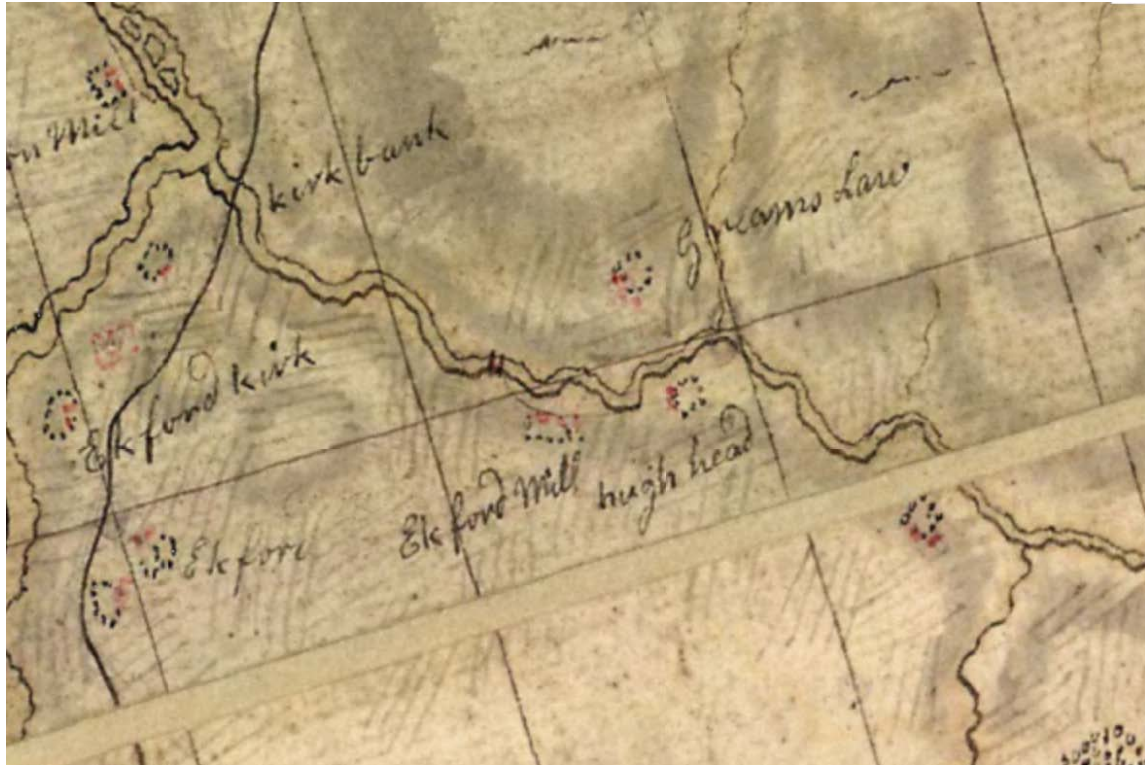 on Mill
kirk bank
Greams Law
Ekford kirk
Ekford Mill
hugh head
Ekford